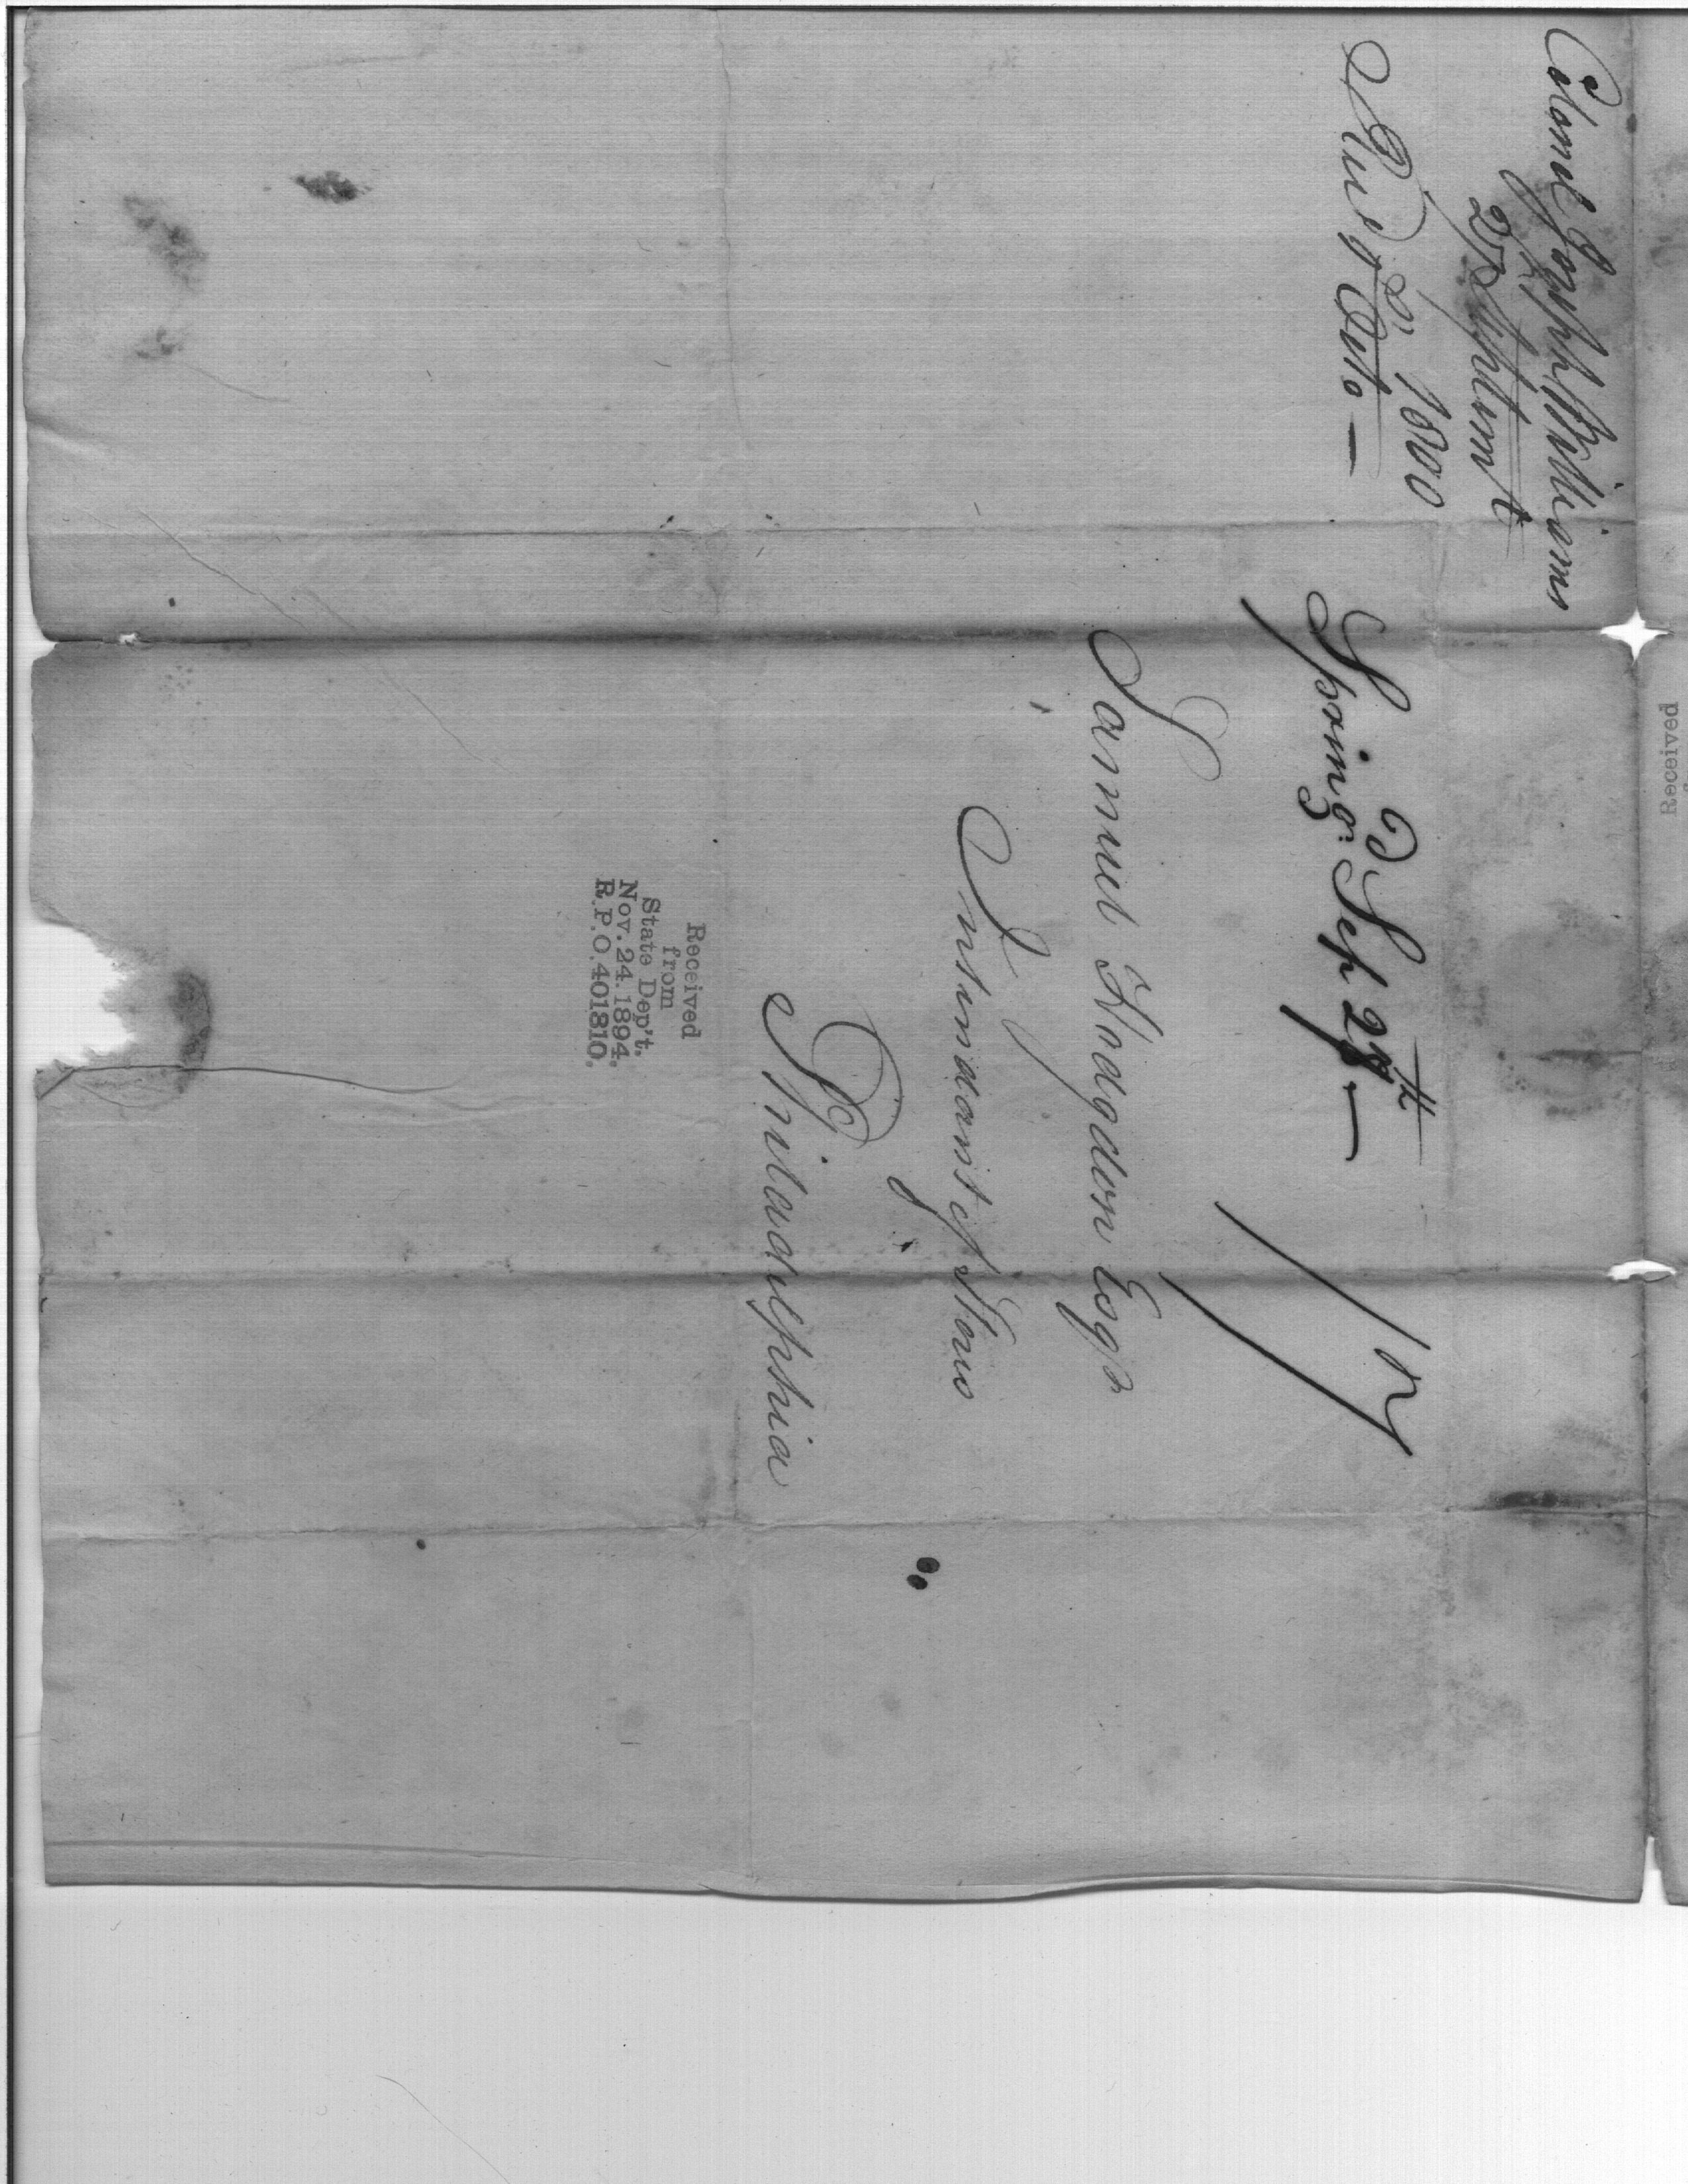 Colonel Joseph Williams
27 September
1800
Recd. 2 Octo. —
Springd. Sep 27th —
17
Samuel Hodgdon Esqr
Intendant of Stores
Philadelphia
Received
from
State Dep't.
Nov. 24. 1894.
R.P.O. 401810.
Received